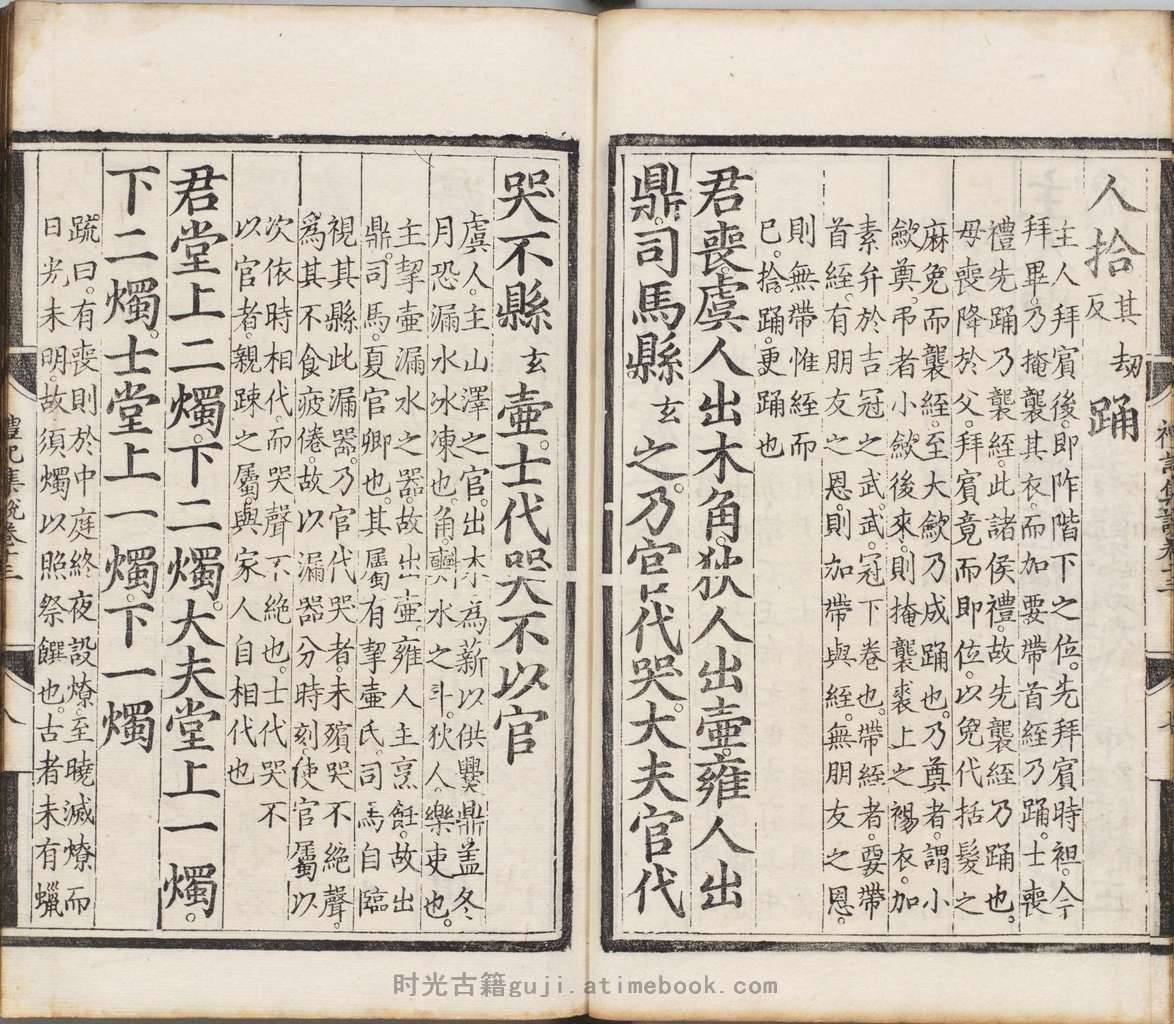 人拾其劫反踊
主人拜賓後。即阼階下之位。先拜賓時袒。今
拜畢。乃掩襲其衣。而加要帶首絰乃踊。士喪
禮先踊乃襲絰。此諸侯禮。故先襲絰乃踊也。
母喪降於父。拜賓竟而即位。以免代括髮之
麻免而襲絰。至大斂乃成踊也。乃奠者。謂小
斂奠。弔者小斂後來。則掩襲裘上之裼衣。加
素弁於吉冠之武。武。冠下卷也。帶絰者。要帶
首絰。有朋友之恩。則加帶與絰。無朋友之恩。
則無帶惟絰而
已。拾踊。更踊也
君喪。虞人出木角。狄人出壺。雍人出
鼎。司馬縣玄之。乃官代哭。大夫官代
哭不縣玄壺。士代哭不以官
虞人。主山澤之官。出木為薪。以供爨鼎。蓋冬
月恐漏水冰凍也。角。㪺水之斗。狄人。樂吏也。
主挈壺漏水之器。故出壺。雍人主烹飪。故出
鼎。司馬。夏官卿也。其屬有挈壺氏。司馬自臨
視其縣此漏器。乃官代哭者。未殯哭不絕聲。
爲其不食疲倦。故以漏器分時刻。使官屬以
次依時相代。而哭聲不絕也。士代哭不
以官者。親踈之屬。與家人自相代也
君堂上二燭。下二燭。大夫堂上一燭。
下二燭。士堂上一燭。下一燭
疏曰。有喪則於中庭終夜設燎。至曉滅燎。而
日光未明。故須燭以照祭饌也。古者未有蠟
禮記集說卷十二
八
时光古籍guji.atimebook.com